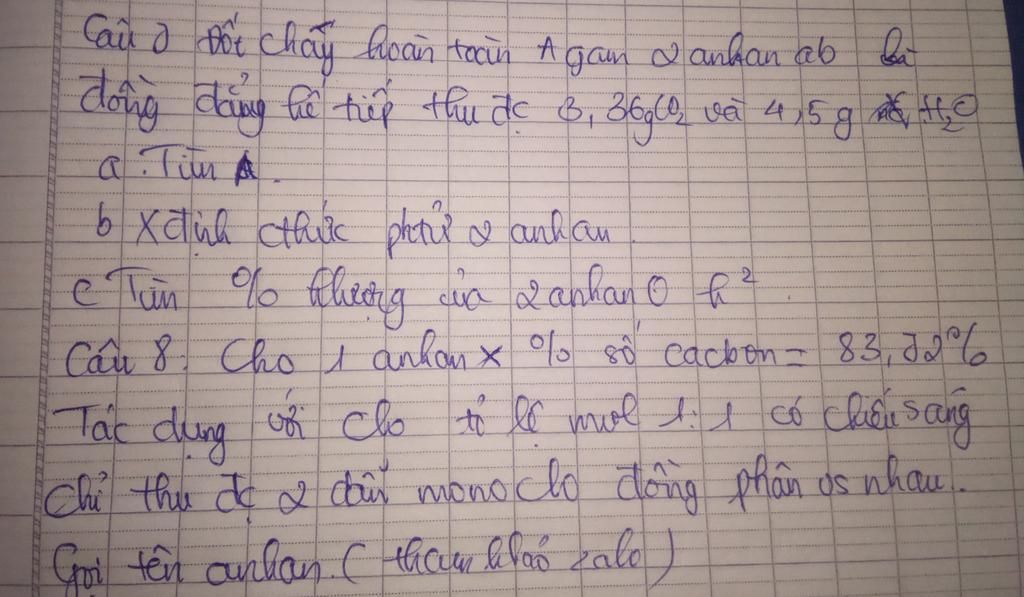 Câu 7 Đốt cháy hoàn toàn A gam 2 anhan ab là
đồng đẳng kế tiếp thu đc 3,36g CO2 và 4,5g H2O
a. Tìm A.
b xđịnh cthức phtử 2 anhan.
c Tìm % klượng của 2 anhan h².
Câu 8: Cho 1 anhan x % số cacbon = 83,72%
Tác dụng với clo tỉ lệ mol 1:1 có chiếu sáng
chỉ thu đc 2 dẫn monoclo đồng phân vs nhau.
Gọi tên anhan. (tham khảo zalo)